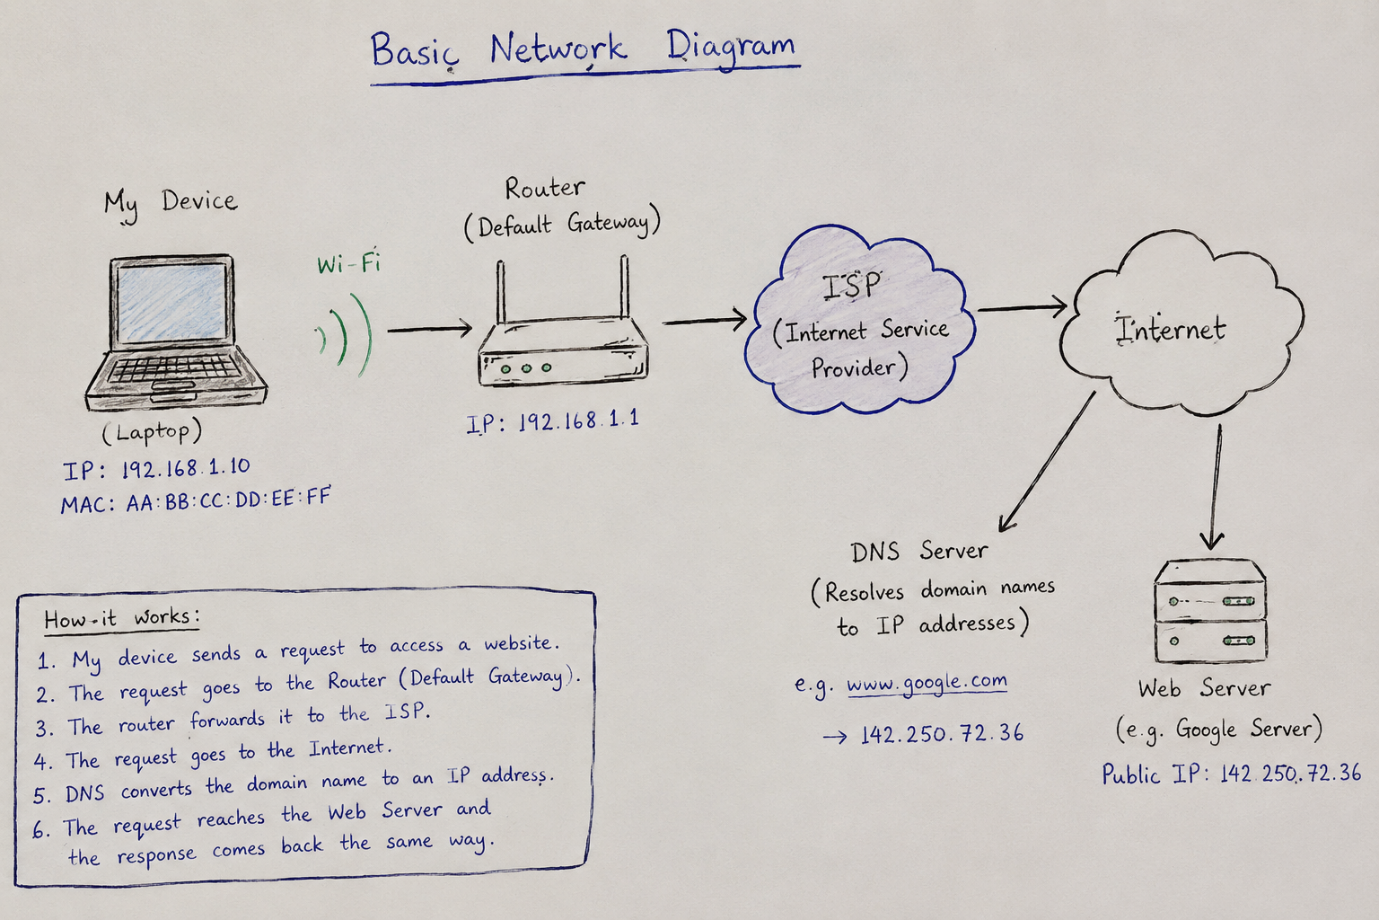 Basic Network Diagram
My Device
(Laptop)
IP: 192.168.1.10
MAC: AA:BB:CC:DD:EE:FF
Wi-Fi
Router
(Default Gateway)
IP: 192.168.1.1
ISP
(Internet Service
Provider)
Internet
DNS Server
(Resolves domain names
to IP addresses)
e.g. www.google.com
→ 142.250.72.36
Web Server
(e.g. Google Server)
Public IP: 142.250.72.36
How-it works:
1. My device sends a request to access a website.
2. The request goes to the Router (Default Gateway).
3. The router forwards it to the ISP.
4. The request goes to the Internet.
5. DNS converts the domain name to an IP address.
6. The request reaches the Web Server and
the response comes back the same way.